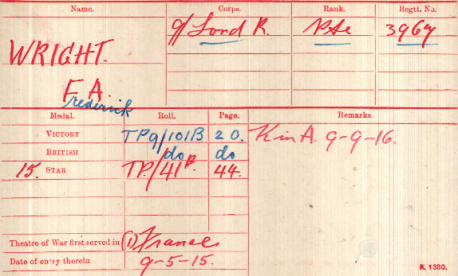 Name. Corps. Rank. Regtl. No.
WRIGHT. 9/Lond R. Pte 3967
F. A.
rederick
Medal. Roll. Page. Remarks.
VICTORY TP9/101B 20. K in A. 9-9-16.
BRITISH do do
15. STAR TP/41B 44.
Theatre of War first served in (1) France
Date of entry therein 9-5-15.
K 1380.